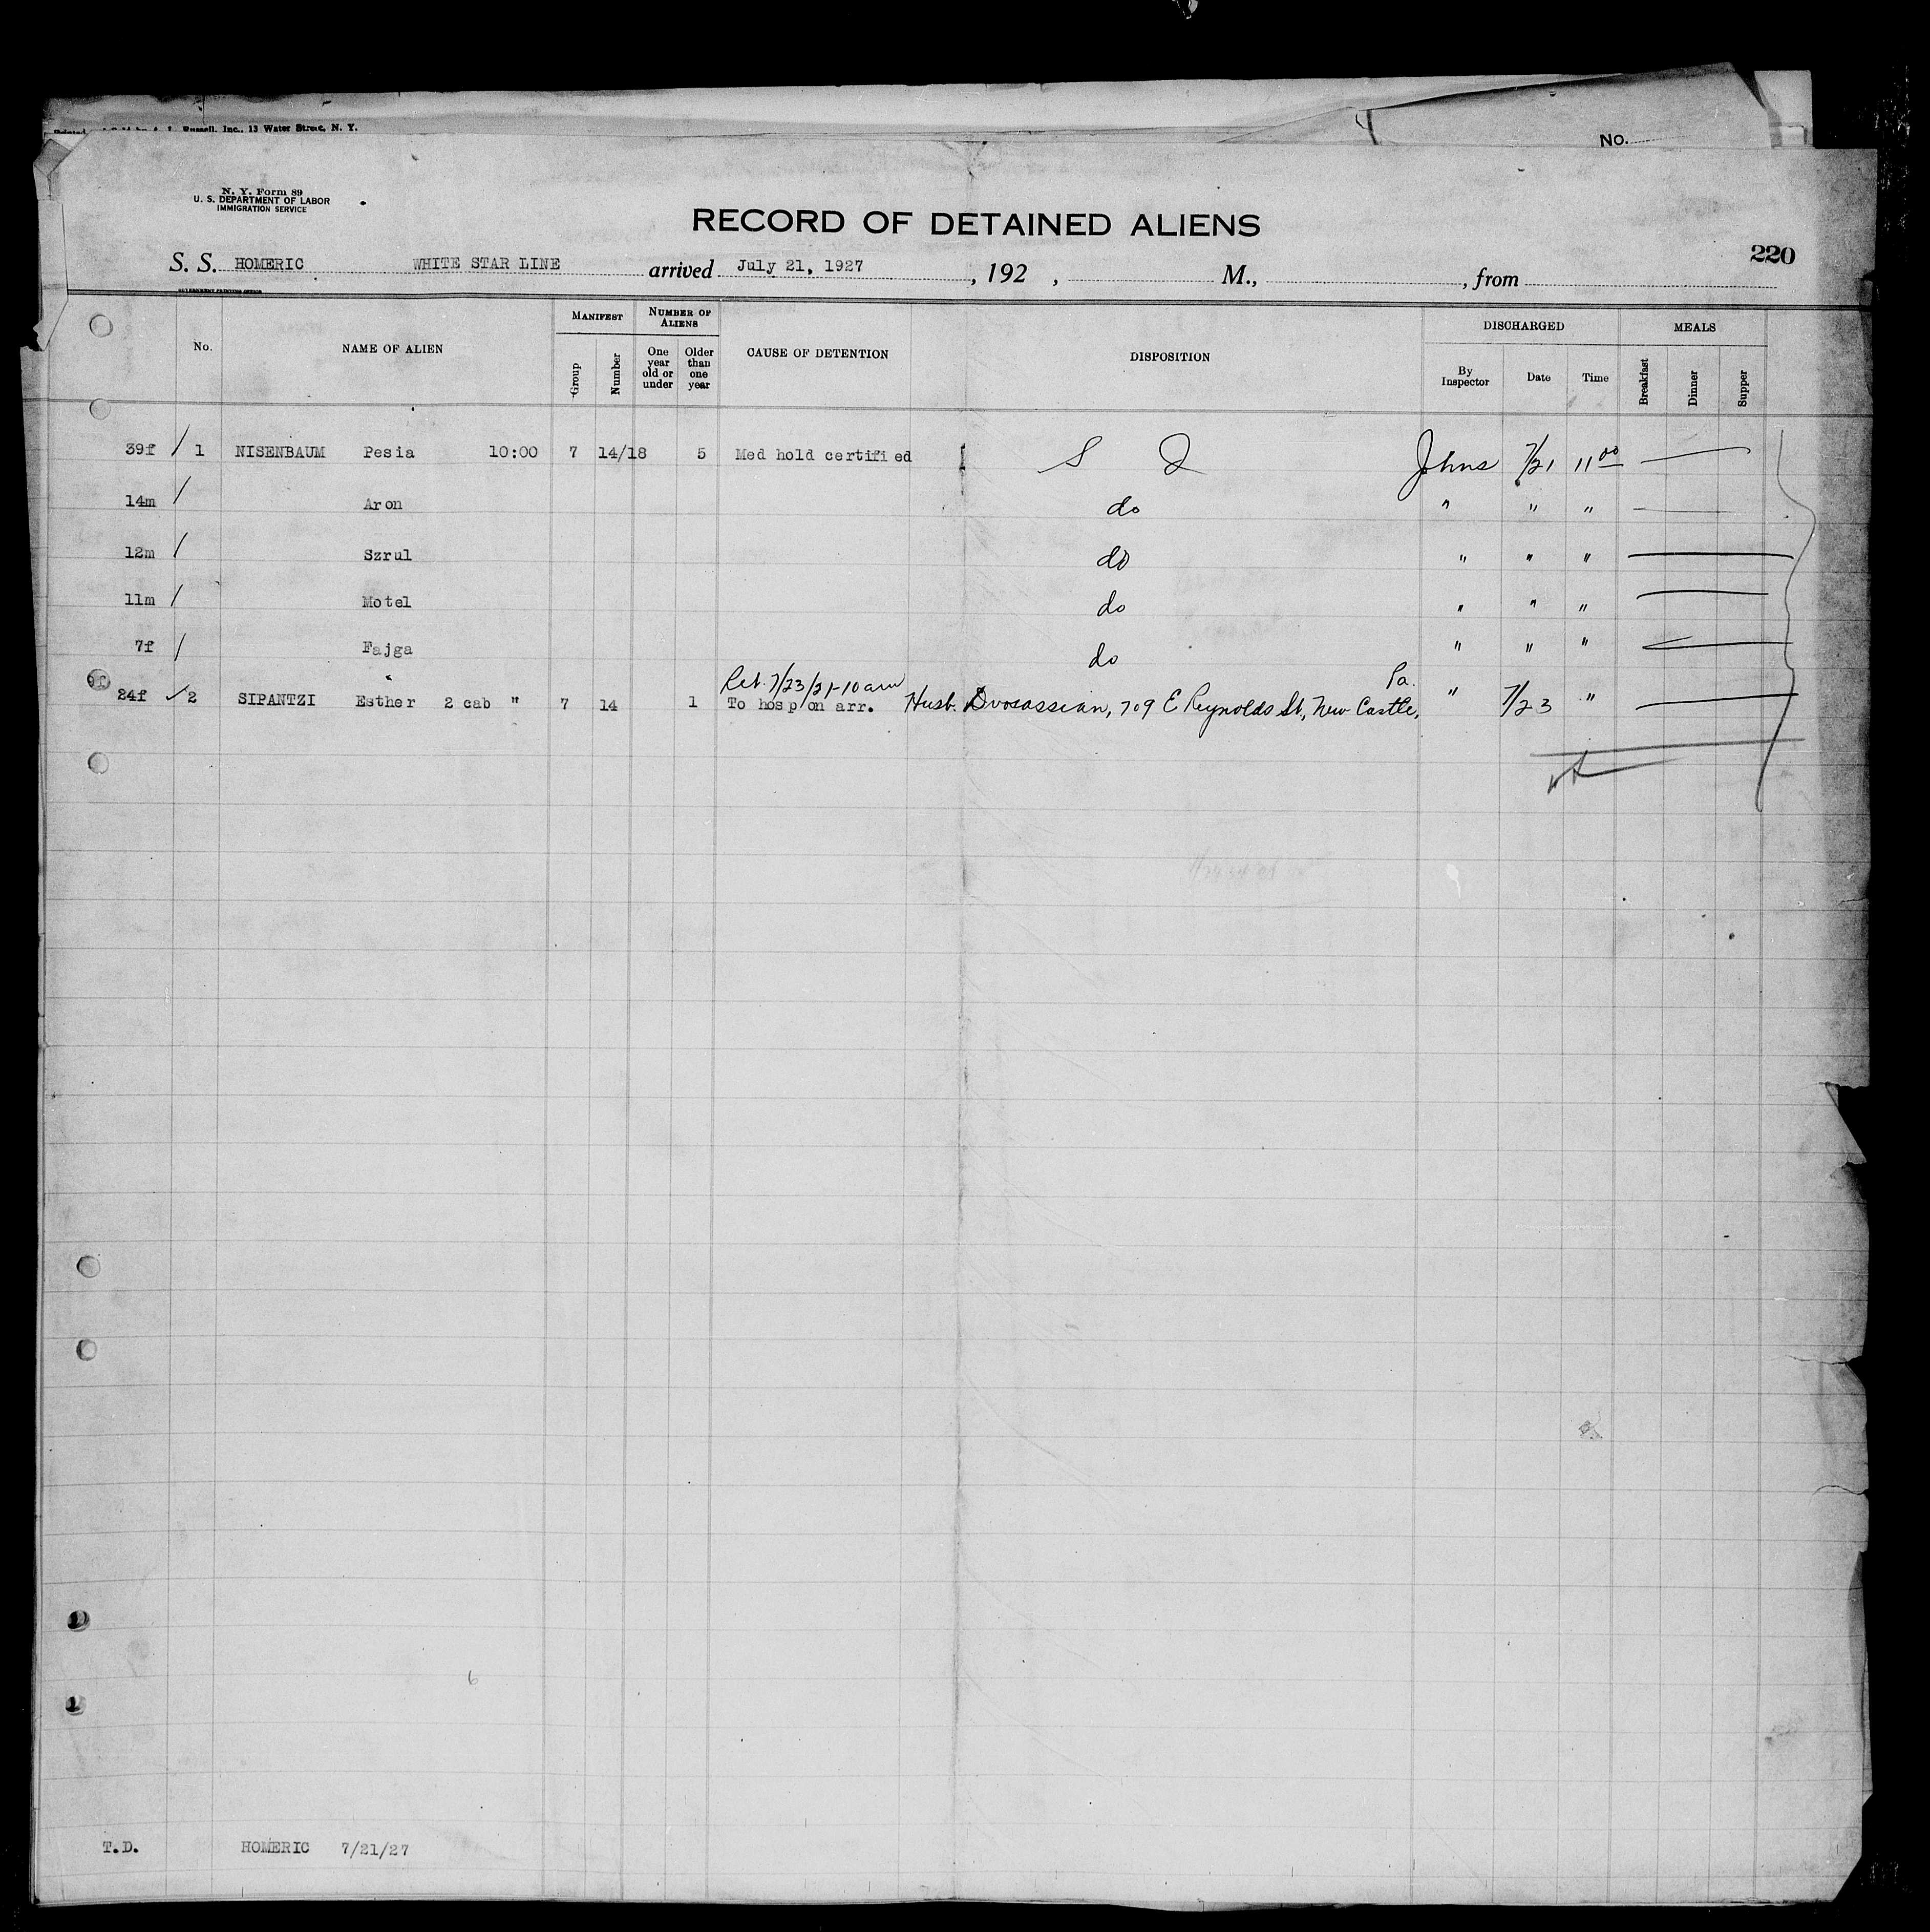 Russell, Inc., 13 Water Street, N. Y.
NO.
N. Y. Form 89
U. S. DEPARTMENT OF LABOR
IMMIGRATION SERVICE
RECORD OF DETAINED ALIENS
220
S. S. HOMERIC WHITE STAR LINE arrived July 21, 1927, 192 , M., , from
GOVERNMENT PRINTING OFFICE
No. NAME OF ALIEN MANIFEST Group Number NUMBER OF ALIENS One year old or under Older than one year CAUSE OF DETENTION DISPOSITION DISCHARGED By Inspector Date Time MEALS Breakfast Dinner Supper
39f / 1 NISENBAUM Pesia 10:00 7 14/18 5 Med hold certified S I Johns 7/21 11 00
14m / Aron do " " "
12m / Szrul do " " "
11m / Motel do " " "
7f / Fajga do " " "
Ret. 7/23/21-10 am Pa.
24f ✓ 2 SIPANTZI Esther 2 cab " 7 14 1 To hosp on arr. Husb. 709 E Reynolds St, New Castle, " 7/23 "
6
T.D. HOMERIC 7/21/27